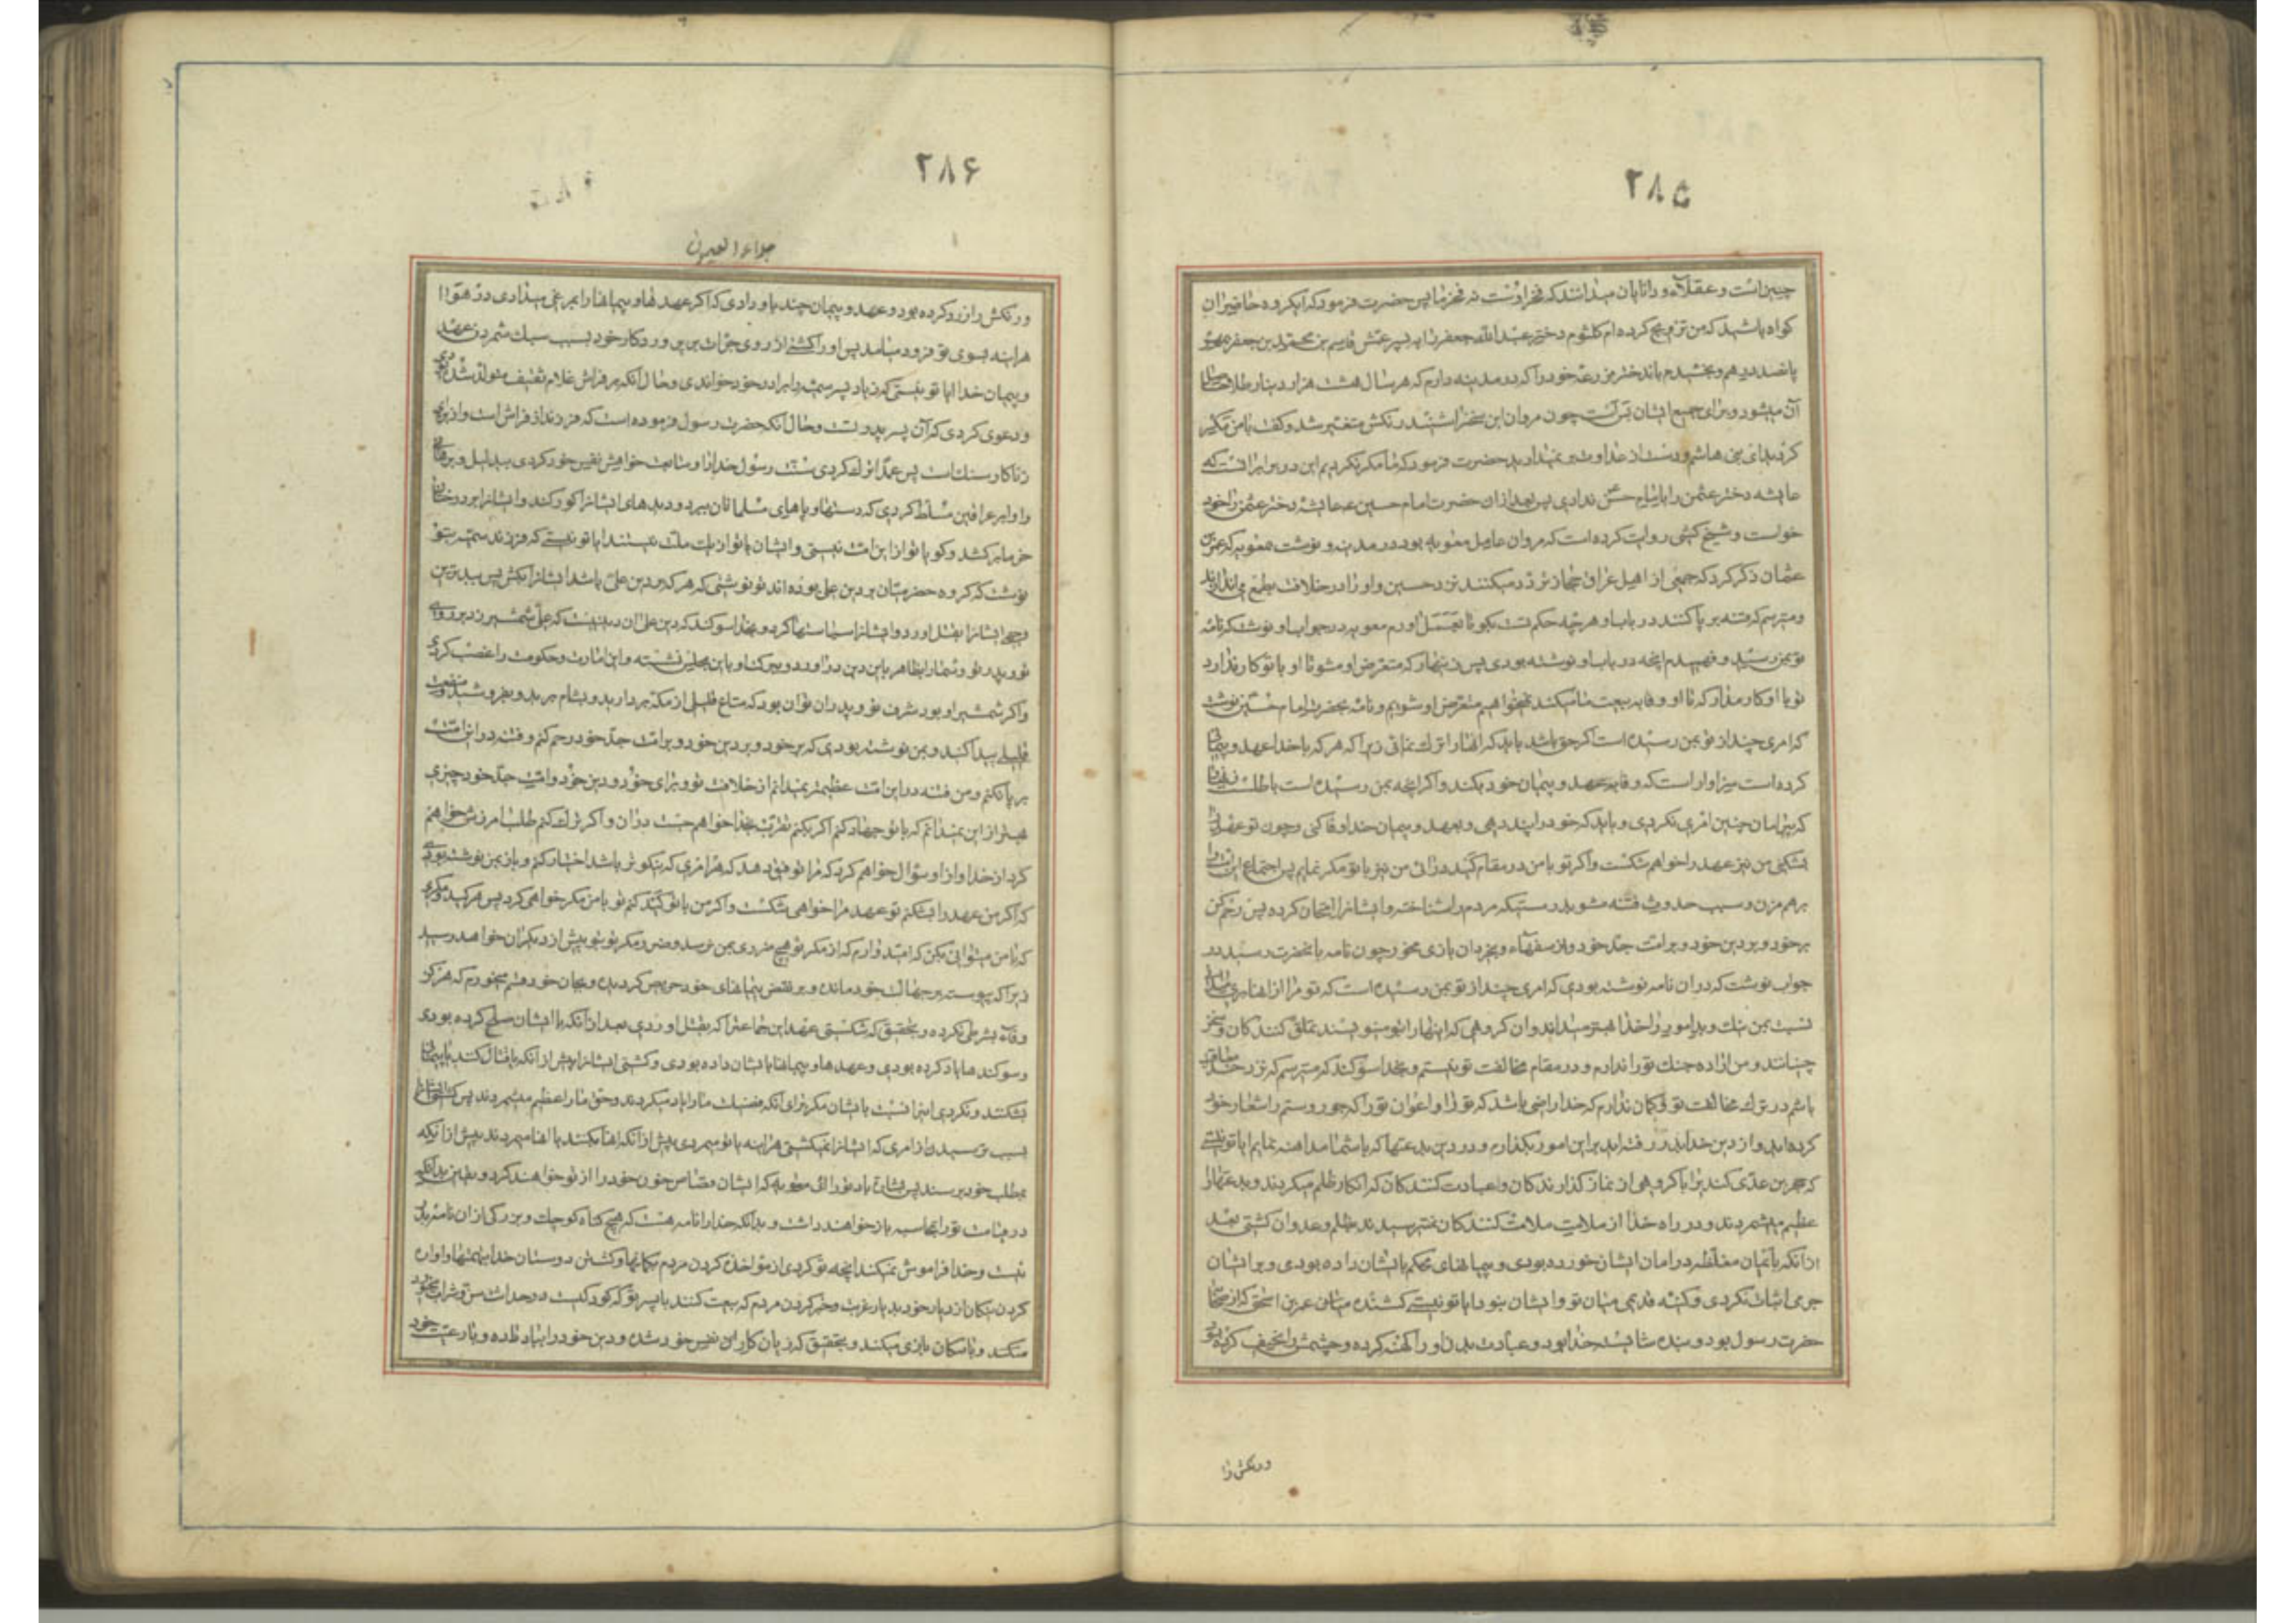 ۲۸۵
چنین است و عقلاء و دانایان میدانند که فخر اوست نه فخر ما پس حضرت فرمود که ایکروه حاضران
کواه باشید که من تزویج کرده‌ام ام کلثوم دختر عبدالله جعفر را به پسر عمش قاسم بن محمد بن جعفر بمهر
پانصد درهم و بخشیدم باند ختر مزرعه خود را که در مدینه دارم که هر سال هشت هزار دینار طلا حاصل
آن میشود و برای جمیع ایشان بس است چون مروان این سخن را شنید رنکش متغیر شد و کفت با من مکر
کردید ای بنی هاشم و دست از عداوت بر نمیدارید حضرت فرمود که ما مکر نکردیم این در برابر انست که
عایشه دختر عثمن را بامام حسن ندادی پس بعد ازان حضرت امام حسین ع عایشه دختر عثمن را خود
خواست و شیخ کشی روایت کرده است که مروان عامل معویه بود در مدینه و نوشت بمعویه که عمر بن
عثمان ذکر کرد که جمعی از اهل عراق و حجاز تردد میکنند نزد حسین و او را در خلافت بطمع می اندازند
و میترسم که فتنه بر پا کنند در باب او هر چه حکم تست بکو تا بعمل اورم معویه در جواب او نوشت که نامه
تو بمن رسید و فهمیدم انچه در باب او نوشته بودی پس زینهار که متعرض او مشو تا او با تو کار ندارد
تو با او کار مدار که تا او وفا به بیعت ما میکند نمیخواهیم متعرض او شویم و نامه بحضرت امام حسین نوشت
که امری چند از تو بمن رسیده است اکر حق باشد باید که انها را ترک نمائی زیرا که هر که با خدا عهد و پیمان
کرده است سزاوار است که وفا بعهد و پیمان خود بکند و اکر انچه بمن رسیده است باطلست
که بیزمان چنین امری نکردی و باید که خود را پند دهی و بعهد و پیمان خدا وفا کنی و چون تو عهد را
بشکنی من نیز عهد را خواهم شکست و اکر تو با من در مقام کید درائی من نیز با تو مکر نمایم پس اجتماع این امت را
برهم مزن و سبب حدوث فتنه مشو بدرستیکه مردم را شناخته و ایشانرا امتحان کرده پس رحم کن
بر خود و بر دین خود و بر امت جد خود و از سفهاء و بیخردان بازی مخور چون نامه بانحضرت رسید در
جواب نوشت که در ان نامه نوشته بودی که امری چند از تو بمن رسیده است که تو مرا از انها
نسبت بمن نیک و بد امور را خدا بهتر میداند و ان کروهی که اینها را بتو مینویسند تملق کنندکان و سخن
چینانند و من اراده جنک تو را ندارم و در مقام مخالفت تو نیستم و بخدا سوکند که میترسم که نزد خدا
باشم در ترک مخالفت تو و کمان ندارم که خدا راضی باشد که تو را و اعوان تو را که جور و ستم را شعار خود
کرده‌اید و از دین خدا بدر رفته‌اید بر این امور بکذارم و در دین بدعتها که با شما مداهنه نمایم ایا تو نیستی
که حجر بن عدی کندی را با کروهی از نماز کذارندکان و عبادت کنندکان که انکار ظلم میکردند و بدعتها را
عظیم میشمردند و در راه خدا از ملامت ملامت کنندکان نمیترسیدند بظلم و عدوان کشتی بعد
از انکه بایمان مغلظه در امان ایشان خورده بودی و پیمانهای محکم بایشان داده بودی و بر ایشان
جرمی اثبات نکردی و کینه قدیمی میان تو و ایشان نبود ایا تو نیستی کشنده عمر بن الحمق که از صحابه
حضرت رسول بود و بنده شایسته خدا بود و عبادت بدن او را کهنه کرده و جسمش را نحیف کرده بود
ورنکش را
۲۸۶
جلاء العیون
و رنکش را زرد کرده بود و عهد و پیمان چند باو دادی که اکر عهد ها و پیمانها را بمرغی میدادی در هوا
هر اینه بسوی تو فرود میامد پس او را کشتی از روی جرات بر پروردکار خود بسبب سبک شمردن عهد
و پیمان خدا ایا تو نیستی که زیاد پسر سمیه را برادر خود خواندی و حال انکه بر فراش غلام ثقیف متولد شده
و دعوی کردی که آن پسر پدر تست و حال آنکه حضرت رسول فرموده است که فرزند از فراش است و از برای
زناکار سنک است پس عمدا ترک کردی سنت رسول خدا را و متابعت خواهش نفس خود کردی بی دلیل و برهان
و او را بر عراقین مسلط کردی که دستها و پاهای مسلمانان ببرد و دیدهای ایشانرا کور کند و ایشانرا بر درختان
خرما بر کشد و کویا تو از این امت نیستی و ایشان با تو از یک ملت نیستند ایا تو نیستی که فرزند سمیه بتو
نوشت که کروه حضرمیان بر دین علی بوده‌اند تو نوشتی که هر که بر دین علی باشد ایشانرا بکش پس بدترین
وجهی ایشانرا بقتل اورد و ایشانرا سیاستها کرد و بخدا سوکند که دین علی ان دینیست که علی شمشیر زد بر روی
تو و پدر تو و شما را بظاهر باین دین در اورد و ببرکت او باین مجلس نشسته و این امارت و حکومت را غصب کردی
و اکر نه شمشیر او بود شرف تو و پدران تو ان بود که متاع قلیلی از مکه بردارید و بشام برید و بفروشید و منفعت
قلیلی پیدا کنید و بمن نوشته بودی که بر خود و بر دین خود و بر امت جد خود رحم کنم و فتنه در این امت
بر پا نکنم و من فتنه در این امت عظیمتر نمیدانم از خلافت تو و برای خود و دین خود و امت جد خود چیزی
بهتر از این نمیدانم که با تو جهاد کنم اکر بکنم تقرب بخدا خواهم جست در ان و اکر ترک کنم طلب امرزش خواهم
کرد از خدا و از او سؤال خواهم کرد که مرا توفیق دهد که هر امری که نیکوتر باشد اختیار کنم و باز بمن نوشته بودی
که اکر من عهد را بشکنم تو عهد مرا خواهی شکست و اکر من با تو کید کنم تو با من مکر خواهی کرد پس هر کید و مکری
که با من میتوانی بکن که امیدوارم که از مکر تو هیچ ضرری بمن نرسد و ضرر مکر تو بتو بیش از دیکران خواهد رسید
زیرا که پیوسته بر جهالت خود مانده و بر نقض پیمانهای خود حریص کردیده و بجان خود قسم میخورم که هرکز
وفاء بشرطی نکرده و بتحقیق که شکستی عهد این جماعترا که بقتل اوردی بعد از آنکه با ایشان صلح کرده بودی
و سوکند ها یاد کرده بودی و عهد ها و پیمانها بایشان داده بودی و کشتی ایشانرا پیش از انکه با تو قتال کنند یا پیمانی
بشکنند و نکردی اینرا نسبت بایشان مکر برای آنکه فضیلت ما را یاد میکردند و حق ما را عظیم میشمردند پس کشتی ایشانرا
بسبب ترسیدن از امری که ایشانرا نمیکشتی هر اینه یا تو میمردی پیش از آنکه انها بکنند یا انها میمردند پیش از انکه
بمطلب خود برسند پس بشارت باد تو را ای معویه که ایشان قصاص خون خود را از تو خواهند کرد و یقین بدانکه
در قیامت تو را بمحاسبه باز خواهند داشت و بدانکه خدا را نامه هست که هیچ کناه کوچک و بزرکی از ان نامه بدر
نیست و خدا فراموش نمیکند انچه تو کردی از مؤاخذه کردن مردم بکمانها و کشتن دوستان خدا بتهمتها و اواره
کردن نیکان از دیار خود بدیار غربت و جبر کردن مردم که بیعت کنند با پسر تو که کودکیست در حداثت سن و شراب میخورد
میکند و با سکان بازی میکند و بتحقیق که زیان کار این نفس خود شده و دین خود را بباد داده و با رعیت خود